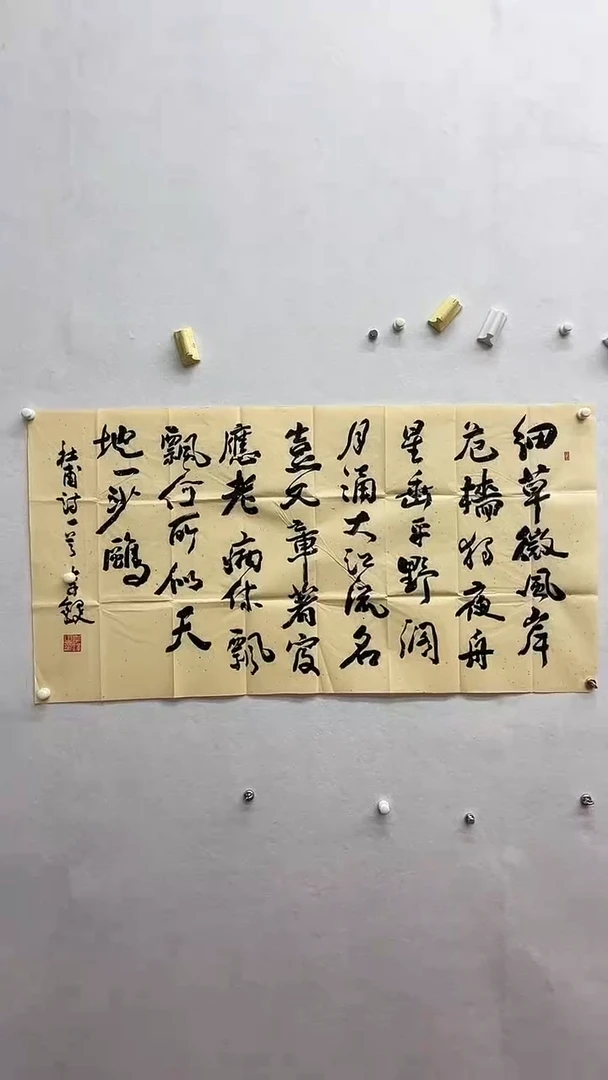 細草微風岸
危檣獨夜舟
星垂平野闊
月涌大江流名
豈文章著官
應老病休飄
飄何所似天
地一沙鷗
杜甫詩一首